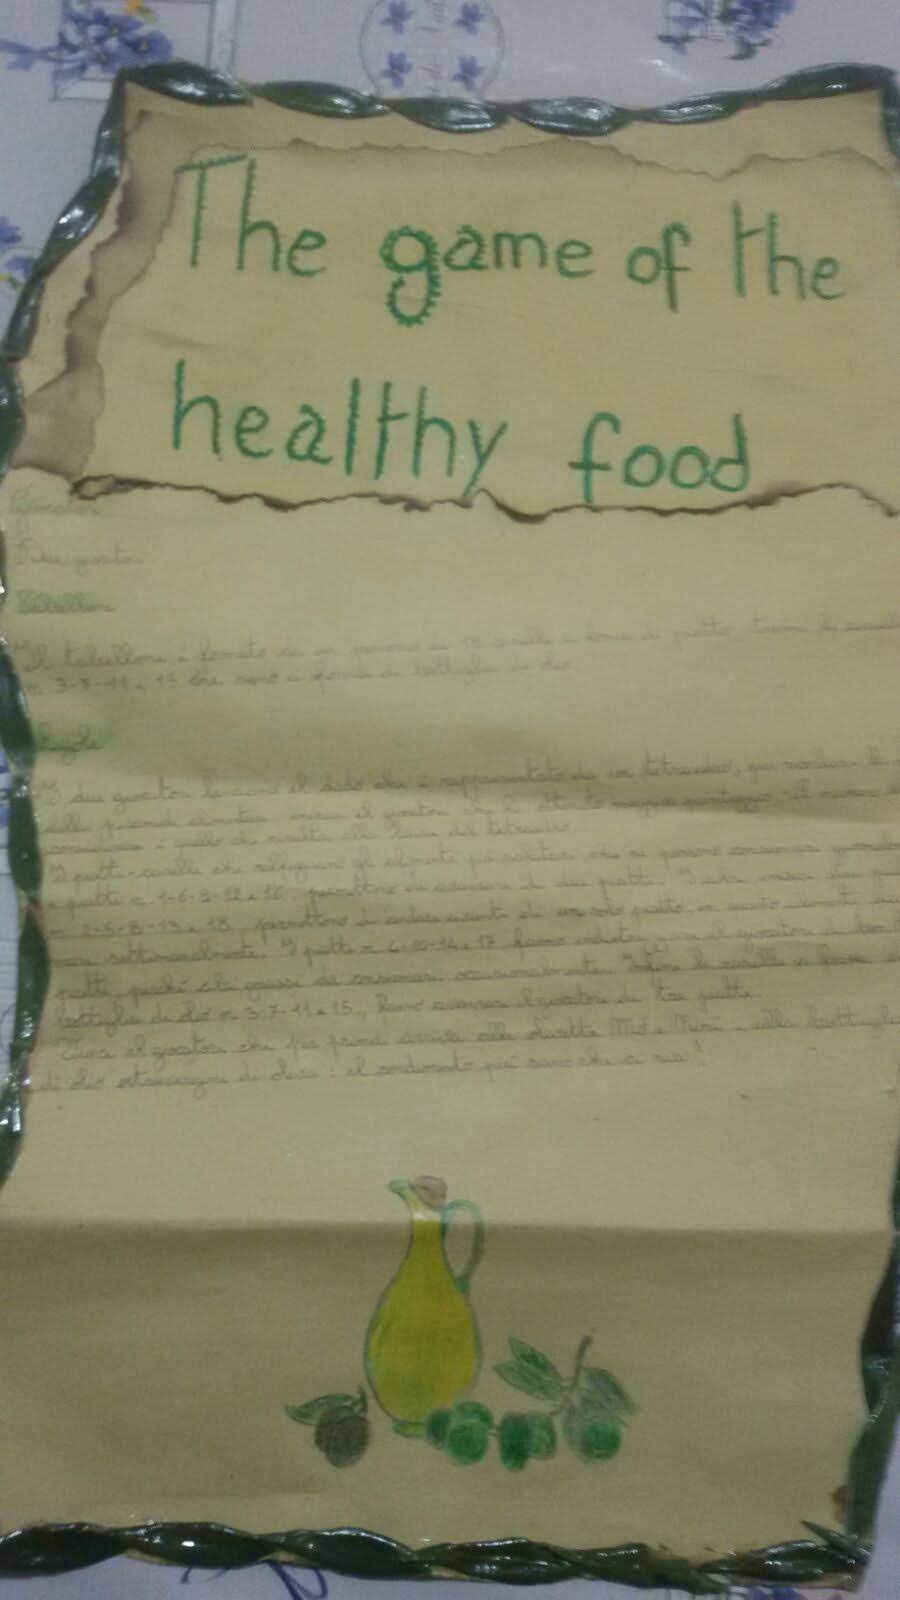 The game of the
healthy food
Giocatori
Due giocatori
Tabellone
Il tabellone è formato da un percorso di 18 caselle a forma di piatto, tranne le caselle
n. 3-7-11 e 15 che sono a forma di bottiglia di olio
Regole
I due giocatori lanciano il dado che è rappresentato da un tetraedro, per
della piramide alimentare, inizia il giocatore che ha ottenuto maggior punteggio. Il numero
è quello che risulta alla base del tetraedro
I piatti-caselle che raffigurano gli alimenti più salutari, che si possono consumare
i piatti n. 1-6-8-12 e 16, permettono di avanzare di due piatti. I
n. 2-5-8-13 e 18, permettono di andare avanti di un solo piatto, in quanto alimenti
settimanalmente. I piatti n. 4-10-14 e 17 fanno indietreggiare il giocatore di
piatti, perché cibi grassi da consumarsi occasionalmente. Infine le caselle a forma di
bottiglia di olio n. 3-7-11 e 15, fanno avanzare il giocatore di tre piatti.
Vince il giocatore che per primo arriva alle olivette e alla bottiglia
di olio extravergine di oliva: il condimento più sano che ci sia!